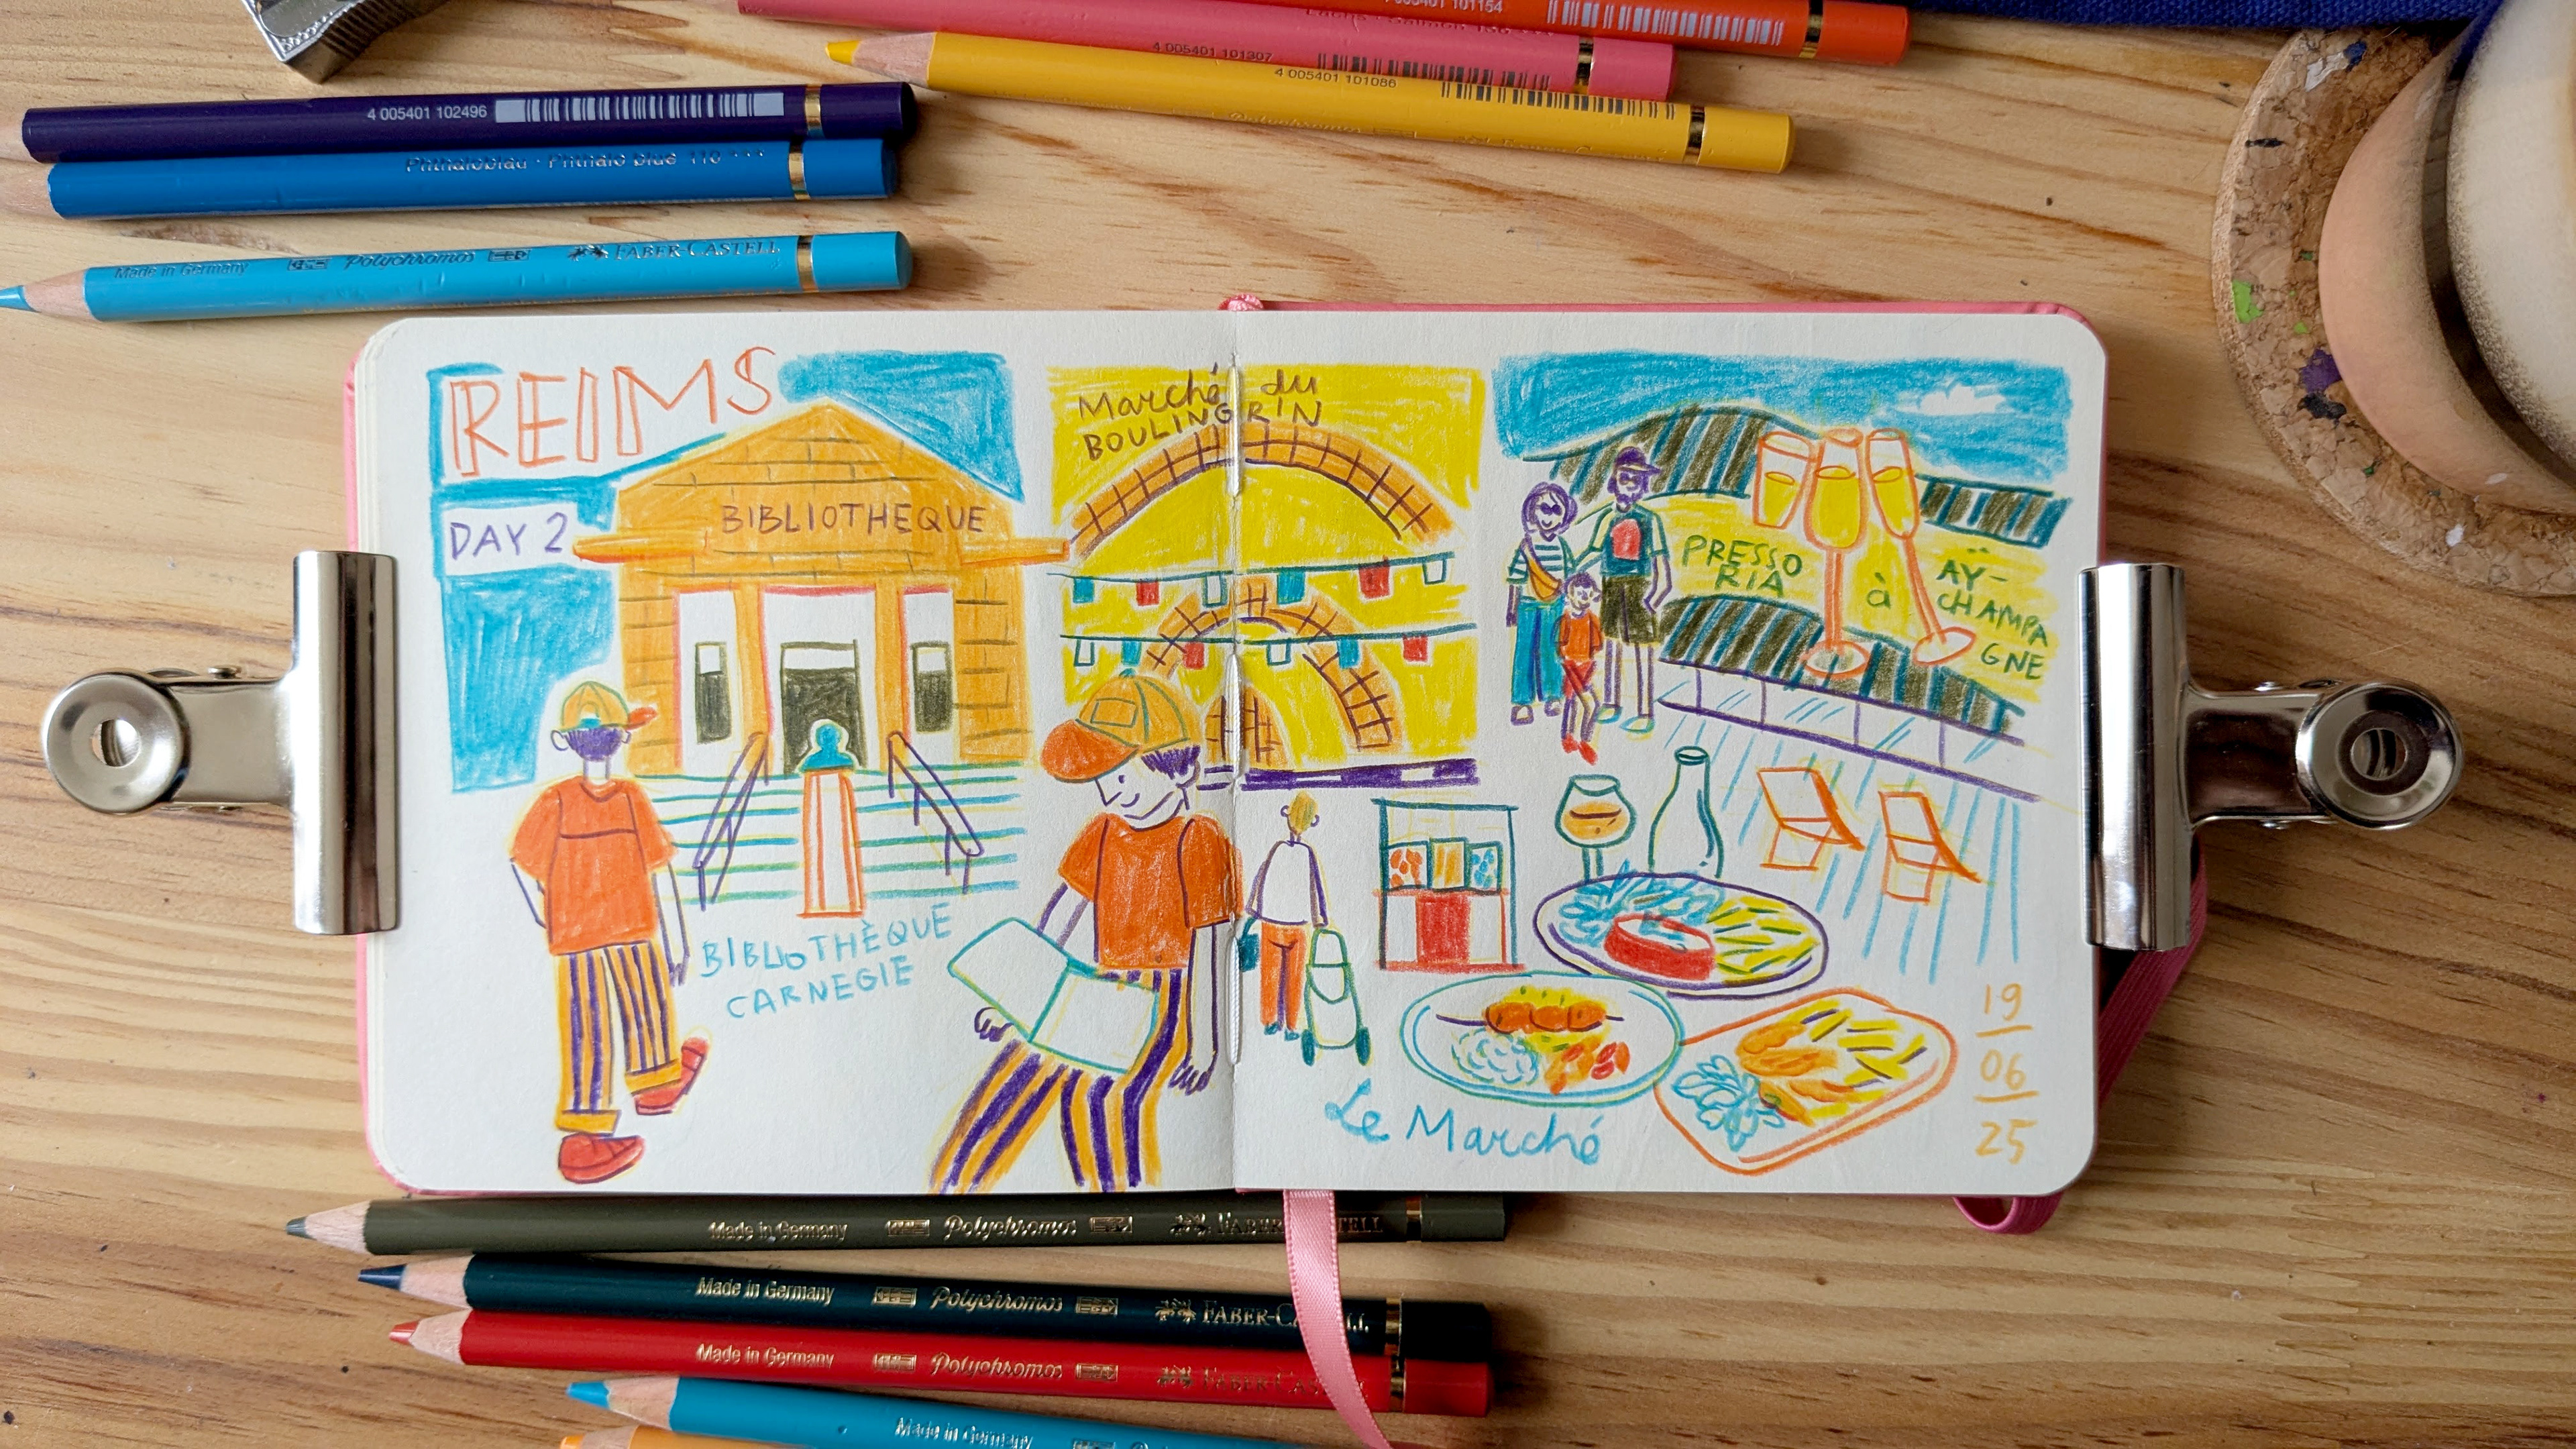 101154
4 005401 101307
4 005401 101086
4 005401 102496
Phthaloblau · Phthalo blue 110 ***
Made in Germany Polychromos FABER-CASTELL
REIMS
DAY 2
BIBLIOTHEQUE
BIBLIOTHÈQUE
CARNEGIE
Marché du
BOULINGRIN
PRESSO
RIA
à
AŸ-
CHAMPA
GNE
Le Marché
19
06
25
Made in Germany Polychromos FABER-CASTELL
Made in Germany Polychromos FABER-CASTELL
Made in Germany Polychromos FABER-CAS
Made in Germany